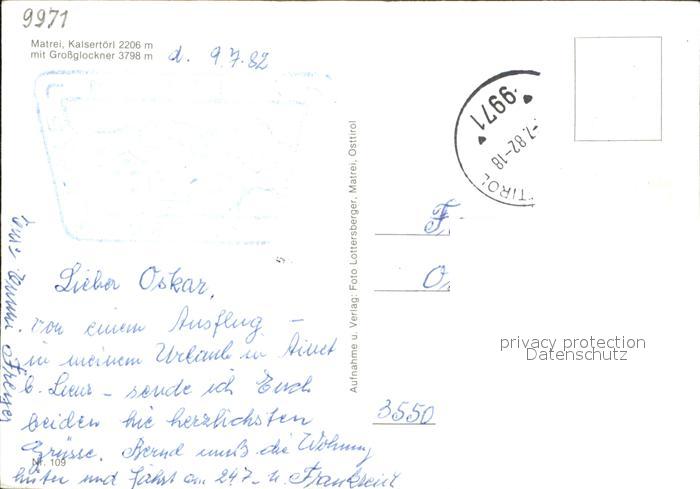 9971
Matrei, Kalsertörl 2206 m
mit Großglockner 3798 m
d. 9.7.82
9971
-7.82-18
TIROL
Aufnahme u. Verlag: Foto Lottersberger, Matrei, Osttirol
F
O
3550
privacy protection
Datenschutz
Lieber Oskar,
von einem Ausflug -
in meinem Urlaub in Ainet
b. Lienz - sende ich Euch
beiden die herzlichsten
Grüsse. Bernd muß die Wohnung
hüten und fährt am 24.7. n. Frankreich
Nr. 109